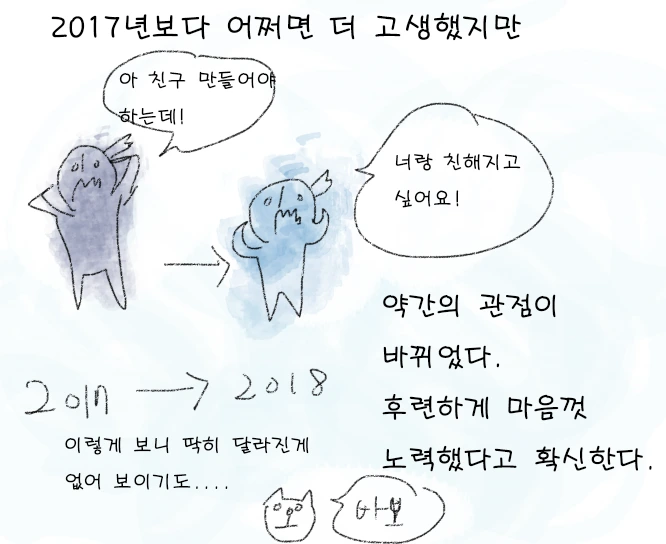 2017년보다 어쩌면 더 고생했지만
아 친구 만들어야
하는데!
너랑 친해지고
싶어요!
약간의 관점이
바뀌었다.
후련하게 마음껏
노력했다고 확신한다.
2017 → 2018
이렇게 보니 딱히 달라진게
없어 보이기도....
바보